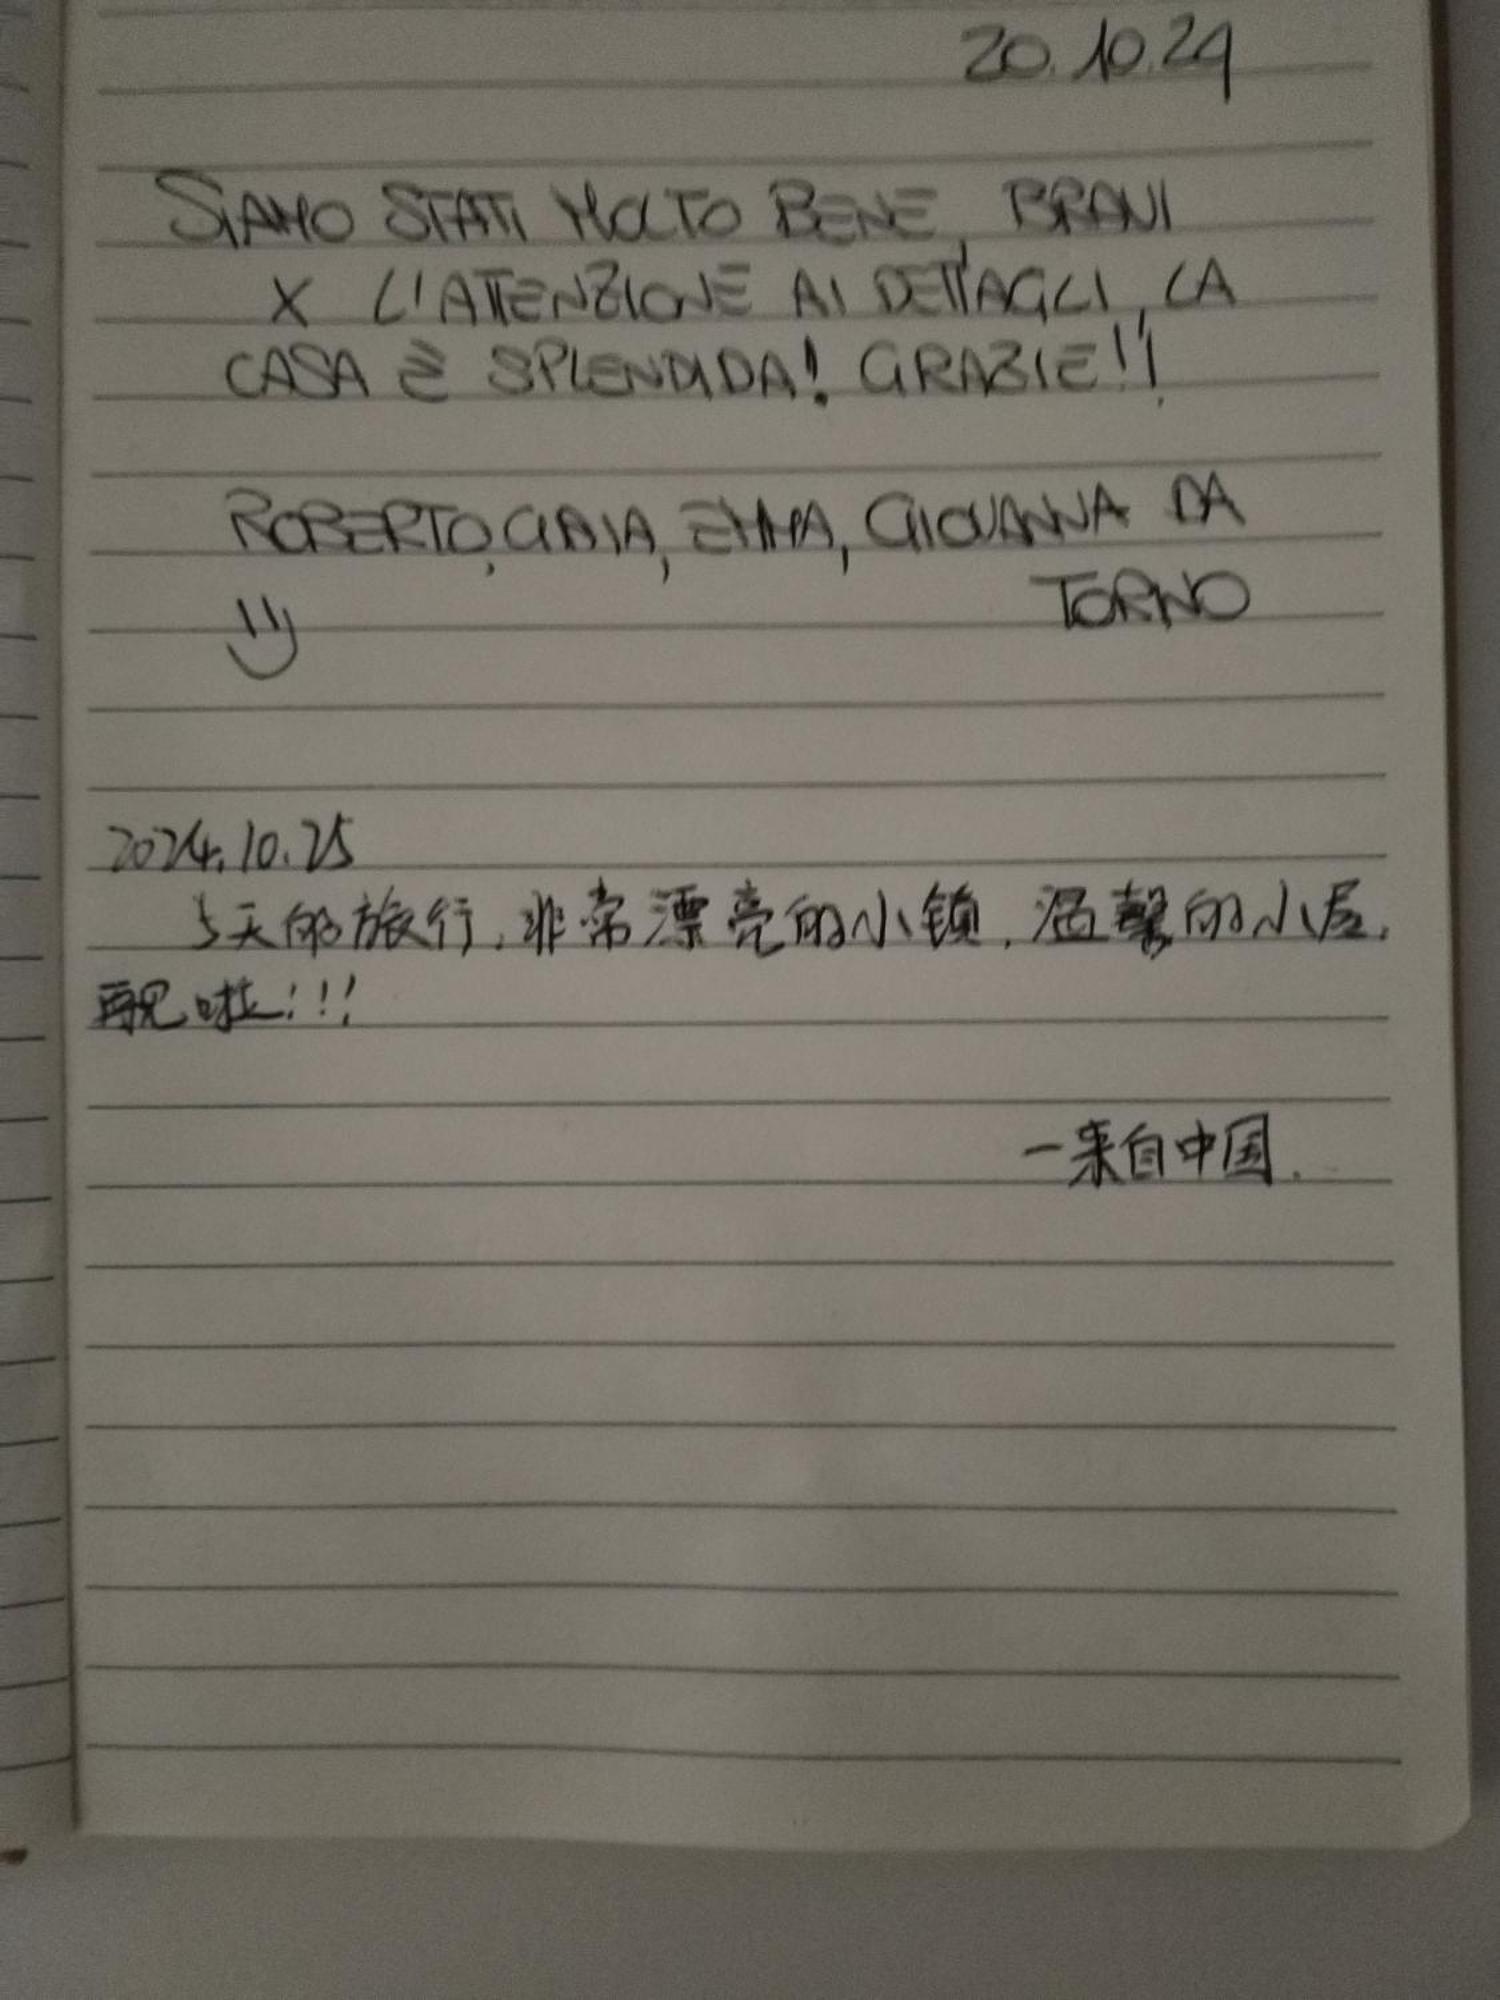 20.10.24
SIAMO STATI MOLTO BENE, BRAVI
X L'ATTENZIONE AI DETTAGLI, LA
CASA È SPLENDIDA! GRAZIE!!
ROBERTO, GAIA, EMMA, GIOVANNA DA
TORNO
2024.10.25
5天的旅行,非常漂亮的小镇,温馨的小屋,
再见啦!!!
—来自中国.